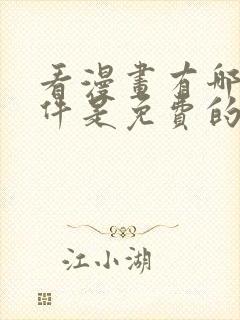 看漫畫有哪
件是免費的
江小湖